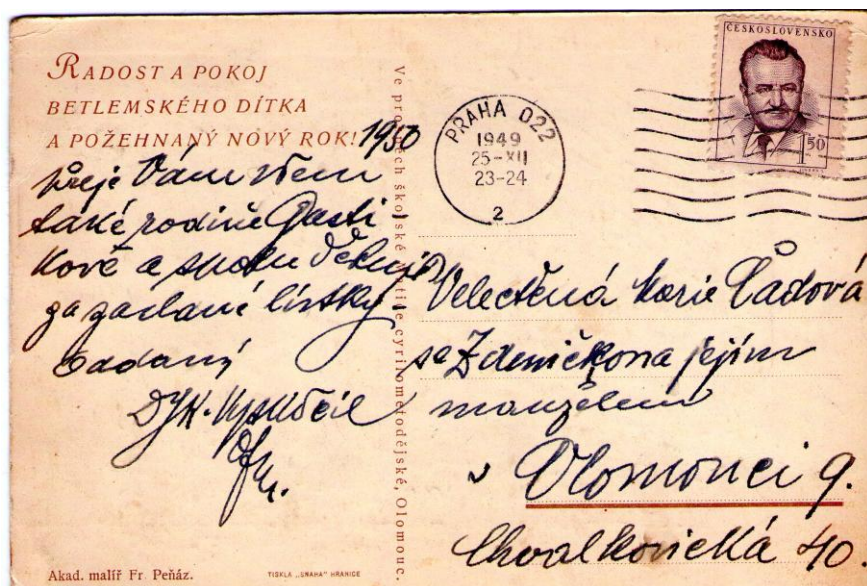 RADOST A POKOJ
BETLEMSKÉHO DÍTKA
A POŽEHNANÝ NOVÝ ROK! 1950
přeje Vám všem
také rodině
kově a spolu děkuji
za zaslané lístky
oddaný
Dýk. Vyskočil
Ve pro ch škol cyrilometodějské, Olomouc.
PRAHA 022
1949
25-XII
23-24
2
ČESKOSLOVENSKO
1 50
Velectěná Marie Čádová
se Zdeničkou a jejím
manželem
v Olomouci 9.
Chvalkovická 40
Akad. malíř Fr. Peňáz.
TISKLA „SNAHA" HRANICE